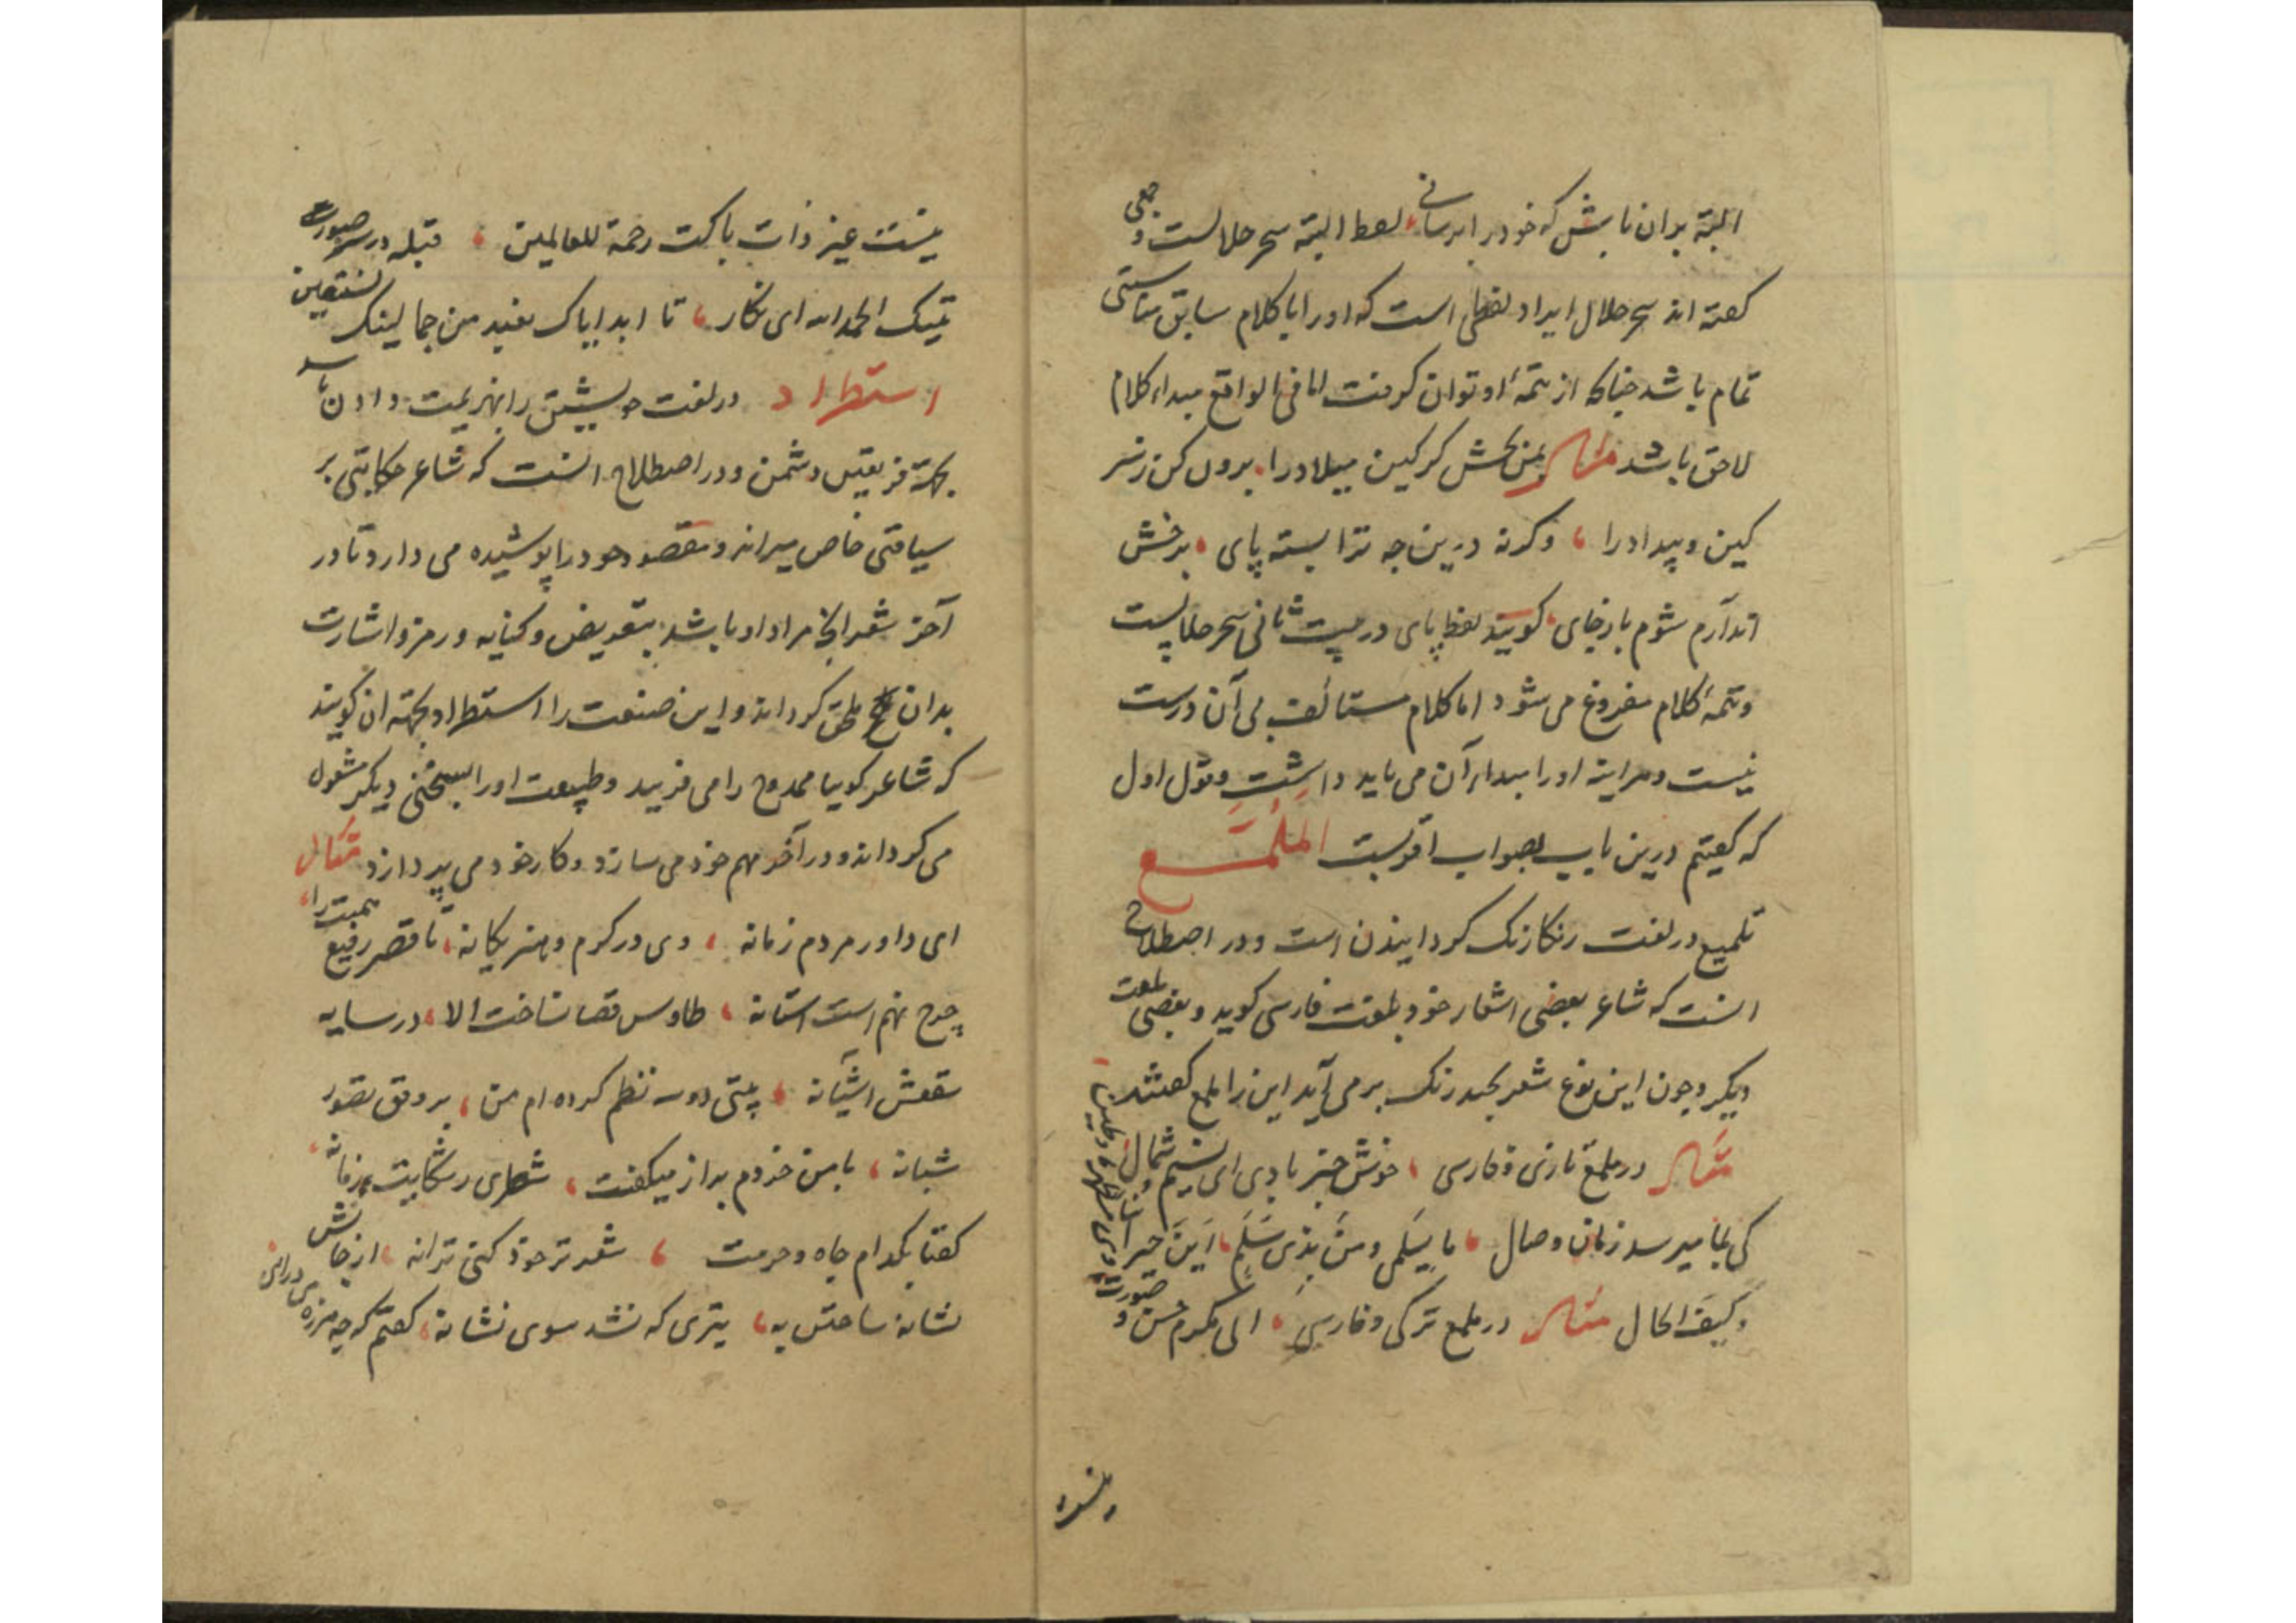 البته بدان باش که خود را برسانی، لفظ البته سحر حلالست و جمعی
کفته اند سحر حلال ایراد لفظی است که او را با کلام سابق مناسبتی
تمام باشد جنانکه از تتمهٔ او توان کرفت اما فی الواقع مبداء کلام
لاحق باشد مثال بمن بخش کرکین میلاد را، برون کن ز سر
کین و بیداد را، وکرنه درین جه ترا بسته پای، برخش
اندرآرم شوم باز جای، کویند لفظ پای در بیت ثانی سحر حلالست
و تتمهٔ کلام مفروغ می شود اما کلام مستانف بی آن درست
نیست و هر اینه او را مبداء آن می باید داشت و قول اول
که کفتیم درین باب بصواب اقربست الملمع
تلمیع در لغت رنکارنک کردانیدن است و در اصطلاح
انست که شاعر بعضی اشعار خود بلغت فارسی کوید و بعضی بلغت
دیکر و جون این نوع شعر بجند رنک بر می آید این را ملمع کفتند
مثال در ملمع تازی و فارسی، خوش خبر بادی ای نسیم شمال
که بما میرسد زمان وصال، ما بسلمی و من بذی سلم، این جیراننا
و کیف الحال مثال در ملمع ترکی و فارسی، الی مکرم حسن و
صورت
نیست غیر ذات پاکت رحمة للعالمین، قبله در سر صورت
الحمد لله ای نکار، تا ابد ایاک نعبد من جمالینک نستعین
استطراد در لغت خویشتن را بهزیمت دادن باشد
بجهة فریفتن دشمن و در اصطلاح انست که شاعر حکایتی بر
سیاقتی خاص میراند و مقصود خود را پوشیده می دارد تا در
آخر شعر انج مراد او باشد بتعریض و کنایه و رمز و اشارت
بدان ملحق کرداند و این صنعت را استطراد بجهته ان کویند
که شاعر کوییا ممدوح را می فریبد و طبیعت او را بسخنی دیکر مشغول
می کرداند و در آخر مهم خود می سازد و کار خود می پردازد مثال
ای داور مردم زمانه، وی در کرم و هنر یکانه، تا قصر رفیع همتت را،
چرخ نهم است استانه، طاوس قضا نساخت الا، در سایه
سقفش اشیانه، بیتی دو سه نظم کرده ام من، بر وفق تصور
شبانه، با من خردم براز میکفت، شطری ز شکایت زمانه،
کفتا بکدام جاه و حرمت، شعر تر خود کنی ترانه، از خانش
نشانه ساختن به، تیری که نشد سوی نشانه، کفتم که جه هرزه می درائی